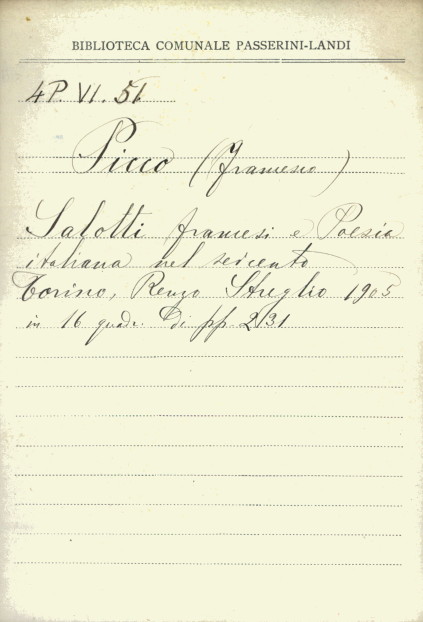 BIBLIOTECA COMUNALE PASSERINI-LANDI
4P. VI. 51
Picco (Francesco)
Salotti francesi e Poesia
italiana nel seicento
Torino, Renzo Streglio 1905
in 16 quadr. Di pp. 231